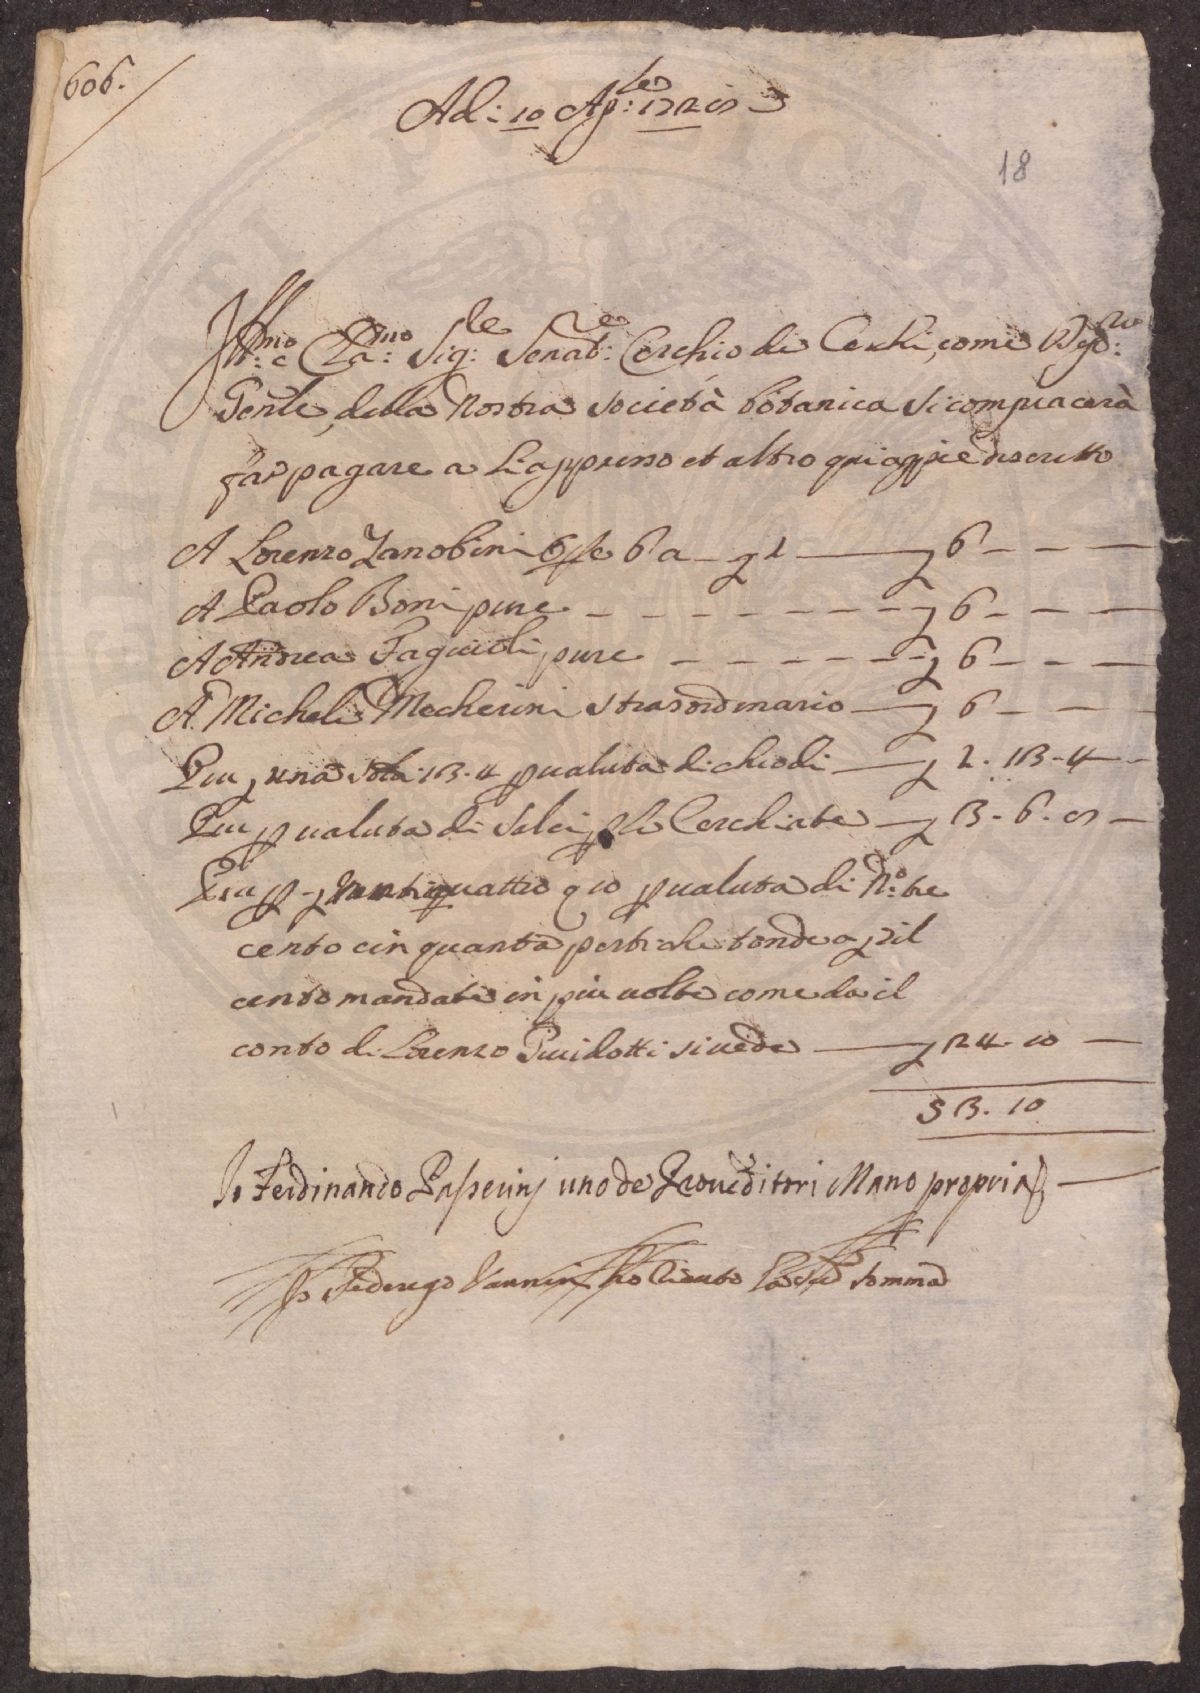 606.
Ad: 10 Ap:le 1720
18
Ill:mo e Cla:mo Sig:le Senat:e Cerchio de Cerchi, come
Gente della Nostra società botanica si compiacerà
far pagare a Li appresso et altro qui appie descritto
A Lorenzo Zanobini 6 a 1 6
A Paolo Boni pure 6
A Andrea Faguioli pure 6
A Michele Mecherini straordinario 6
Piu una sola 13.4 p valuta di chiodi 1.13.4
Piu p valuta di Salci p li Cerchiate 3.6.8
Piu p ventiquattro 10 p valuta di N:o tre
cento cinquanta pertiche tonde a 7 il
cento mandate in piu volte come da il
conto di Lorenzo Guidotti si vede 24.10
53.10
Io Ferdinando Passerinj uno de Proveditori Mano propria
Io Federigo Vannini ho riceuto la Sud.a somma